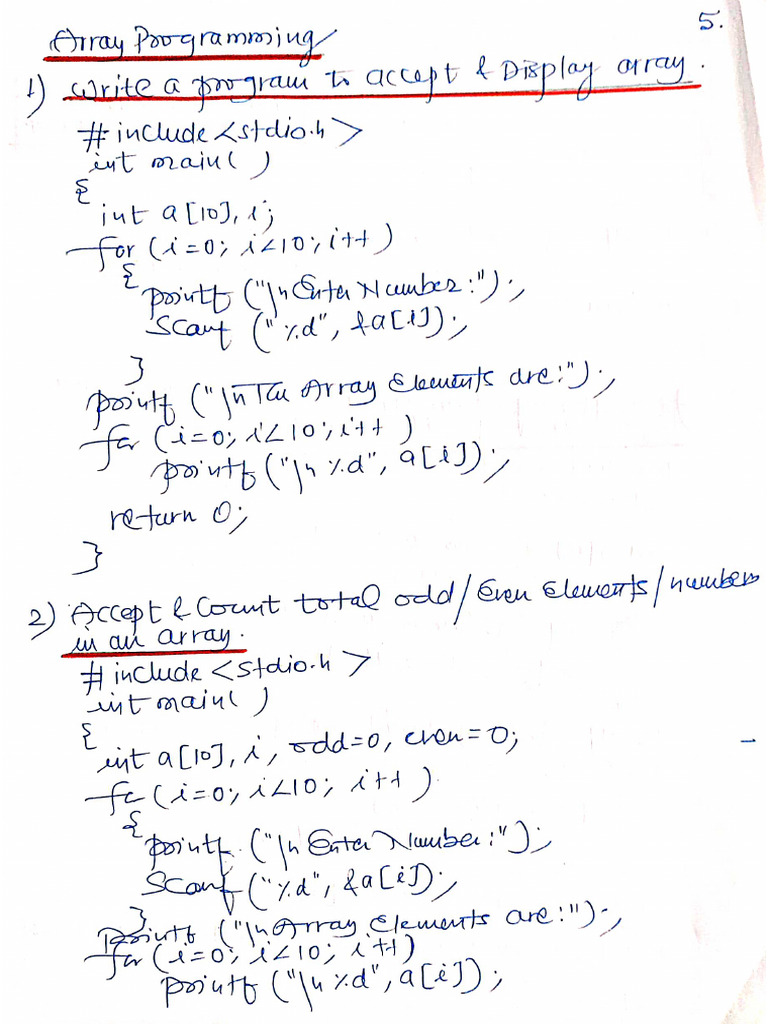 5.
Array Programming
1) Write a program to accept & Display array.
#include <stdio.h>
int main( )
{
int a[10], i;
for (i=0; i<10; i++)
{
printf ("\n Enter Number:");
Scanf ("%d", &a[i]);
}
printf ("\n The Array Elements are:");
for (i=0; i<10; i++ )
printf ("\n %d", a[i]);
return 0;
}
2) Accept & Count total odd/Even Elements/numbers
in an array.
#include <stdio.h>
int main( )
{
int a[10], i, odd=0, even=0;
for (i=0; i<10; i++)
{
printf ("\n Enter Number:");
Scanf ("%d", &a[i]);
}
printf ("\n Array Elements are:");
for (i=0; i<10; i++)
printf ("\n %d", a[i]);